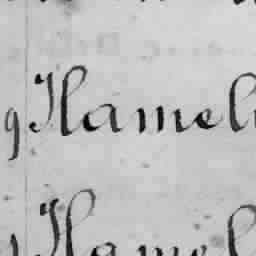 g Hamel
Hamel